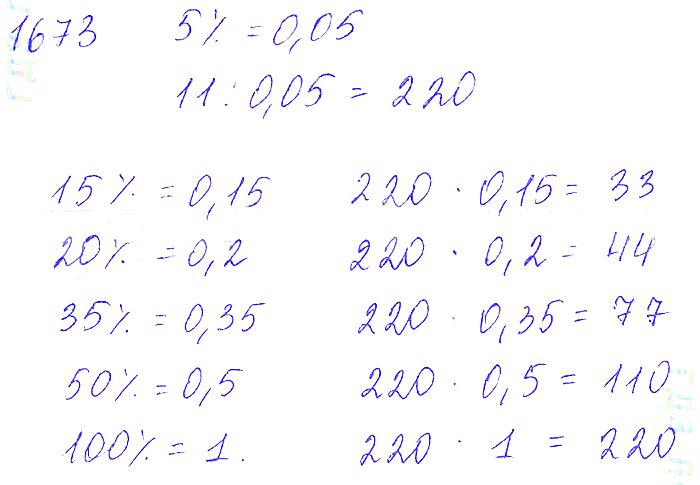 1673 5% = 0,05
11 : 0,05 = 220
15% = 0,15 220 · 0,15 = 33
20% = 0,2 220 · 0,2 = 44
35% = 0,35 220 · 0,35 = 77
50% = 0,5 220 · 0,5 = 110
100% = 1. 220 · 1 = 220